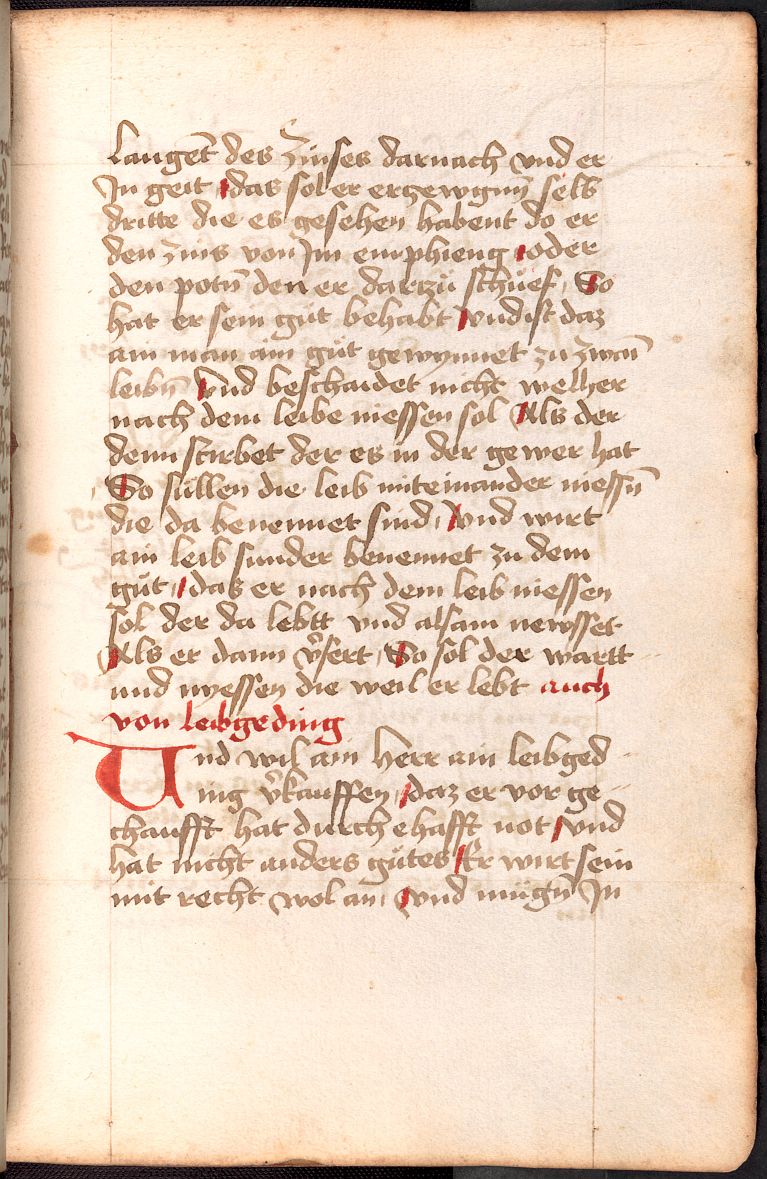 laugeñt des zinses darnach vnd er
In geit das sol er erzewgnn̄ selb
dritte die es gesehen habent do er
den zins von Im emphieng oder
den potn̄ den er darzü schüef, So
hat er sein güt behabt Vnd ist daz
ain man ain güt gewynnet zu zwain̄
leibn̄ Vnd beschaidet nicht welher
nach dem leibe niessen sol Als der
denn stirbet der es in der gewer hat
So süllen die leib miteinander niessn̄
die da benennet sind, Vnd wirt
ain leib sunder benennet zu dem
güt, das er nach dem leib niessen
sol der da lebtt vnd alsam newsset
Als er dann v̄fert, So sol der wartt
und nyessen die weil er lebt auch
von leibgeding
Und wil ain herr ain leibged
ing v̄kauffen, daz er vor ge
chaufft hat durch ehafft not Vnd
hat nicht anders gütes Er wirt sein
mit recht wol an, Vnd mügn̄ In